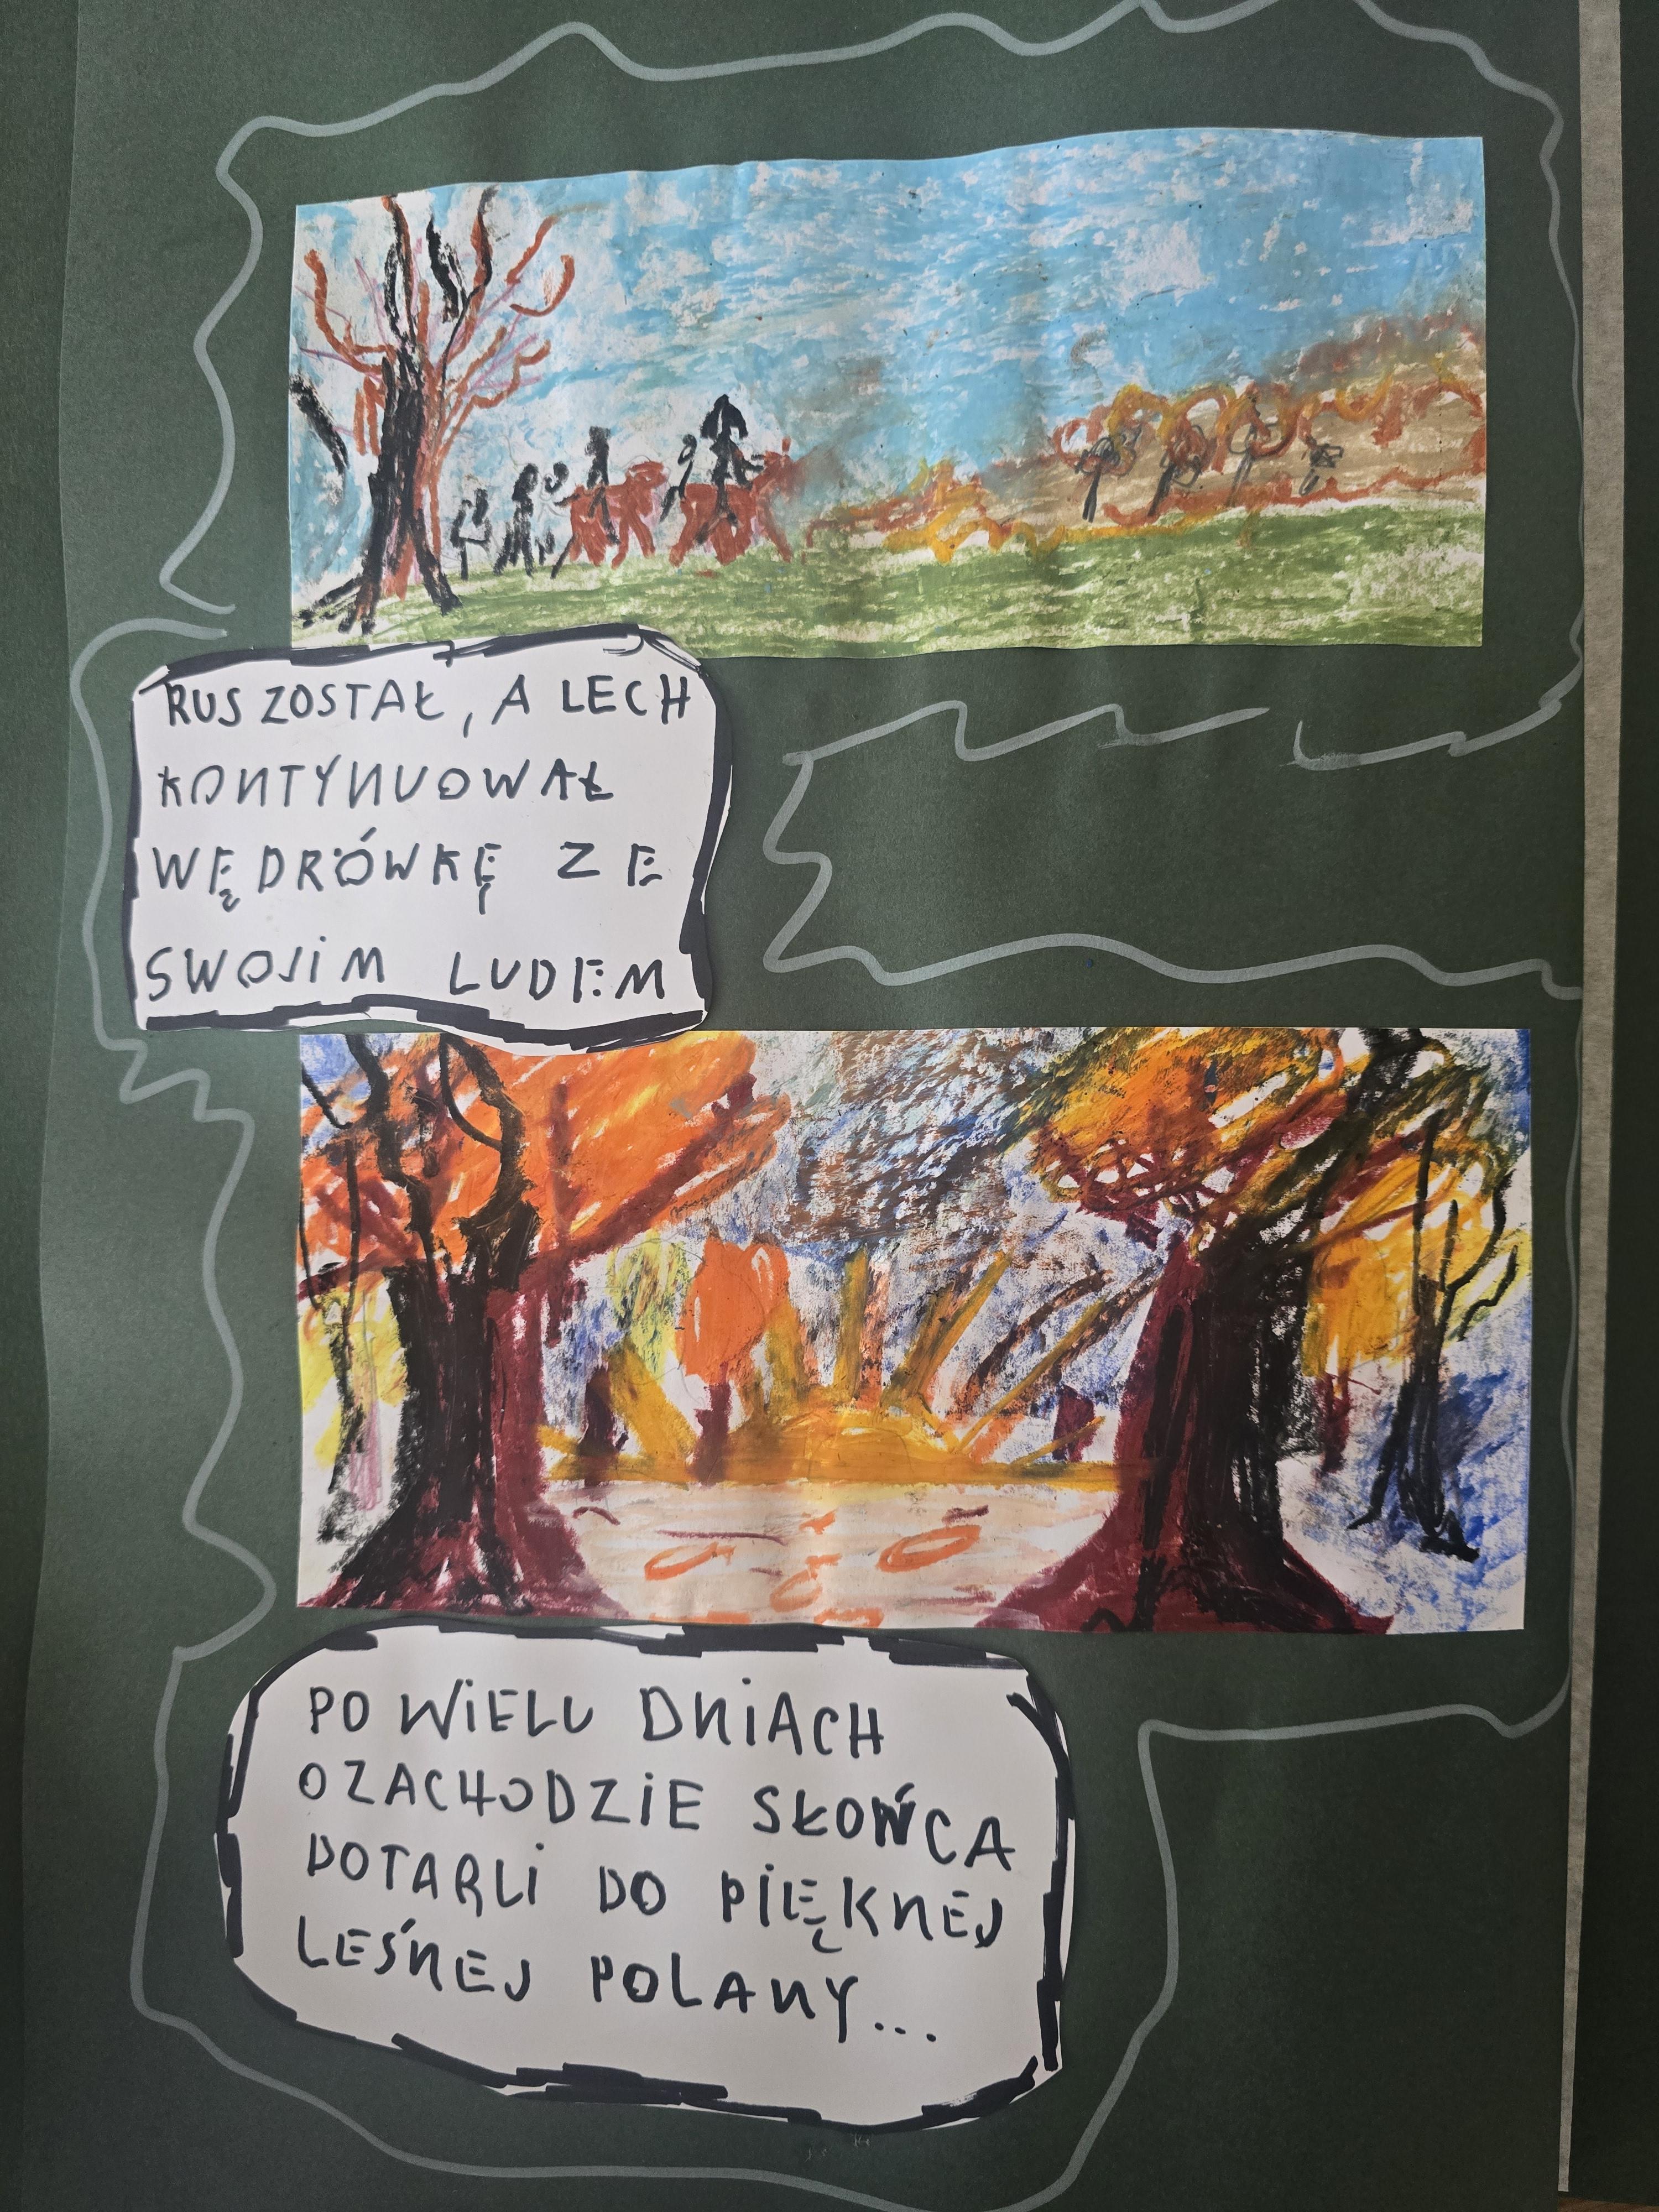 RUS ZOSTAŁ, A LECH
KONTYNUOWAŁ
WĘDRÓWKĘ ZE
SWOJIM LUDEM
PO WIELU DNIACH
O ZACHODZIE SŁOŃCA
DOTARLI DO PIĘKNEJ
LEŚNEJ POLANY...